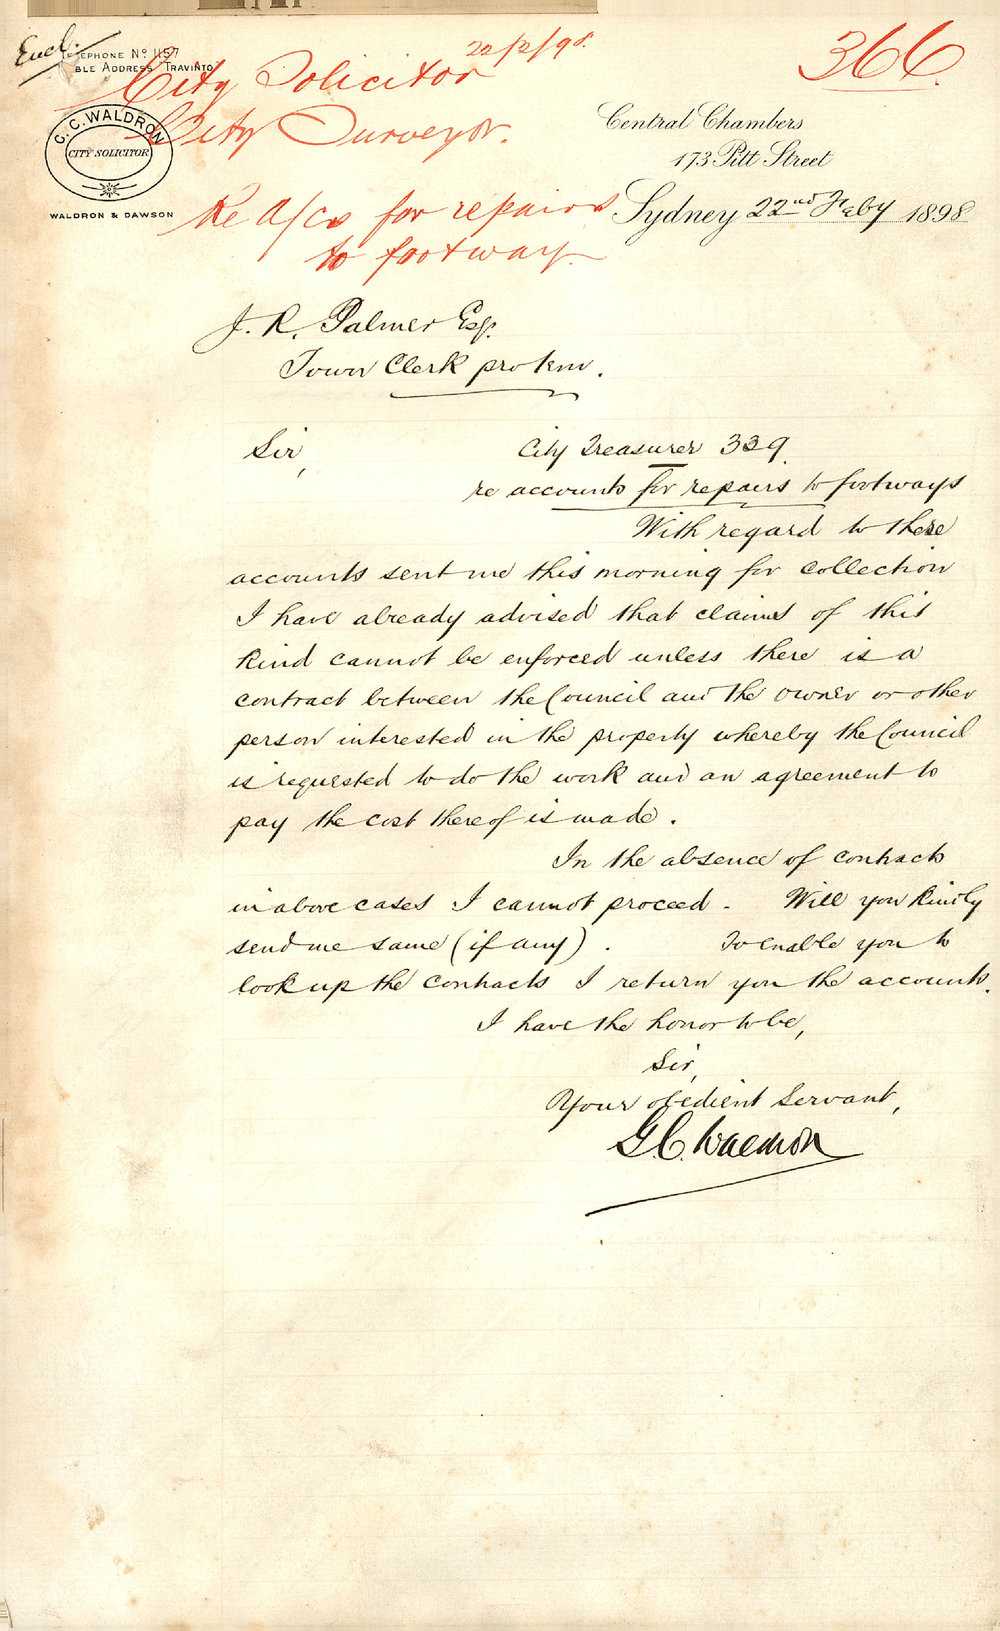 Encl.
TELEPHONE No 1157
BLE ADDRESS TRAVINTO
22/2/98.
366.
City Solicitor
City Surveyor.
G. C. WALDRON
CITY SOLICITOR
WALDRON & DAWSON
Central Chambers
173 Pitt Street
Re a/cs for repairs
to footway.
Sydney 22nd Feby 1898
J. R. Palmer Esq.
Town Clerk pro tem.
Sir,
City Treasurer 339
re accounts for repairs to footways
With regard to these
accounts sent me this morning for collection
I have already advised that claims of this
kind cannot be enforced unless there is a
contract between the Council and the owner or other
person interested in the property whereby the Council
is requested to do the work and an agreement to
pay the cost thereof is made.
In the absence of contracts
in above cases I cannot proceed. Will you kindly
send me same (if any). To enable you to
look up the contracts I return you the accounts.
I have the honor to be,
Sir,
Your obedient servant,
G. C. Waldron